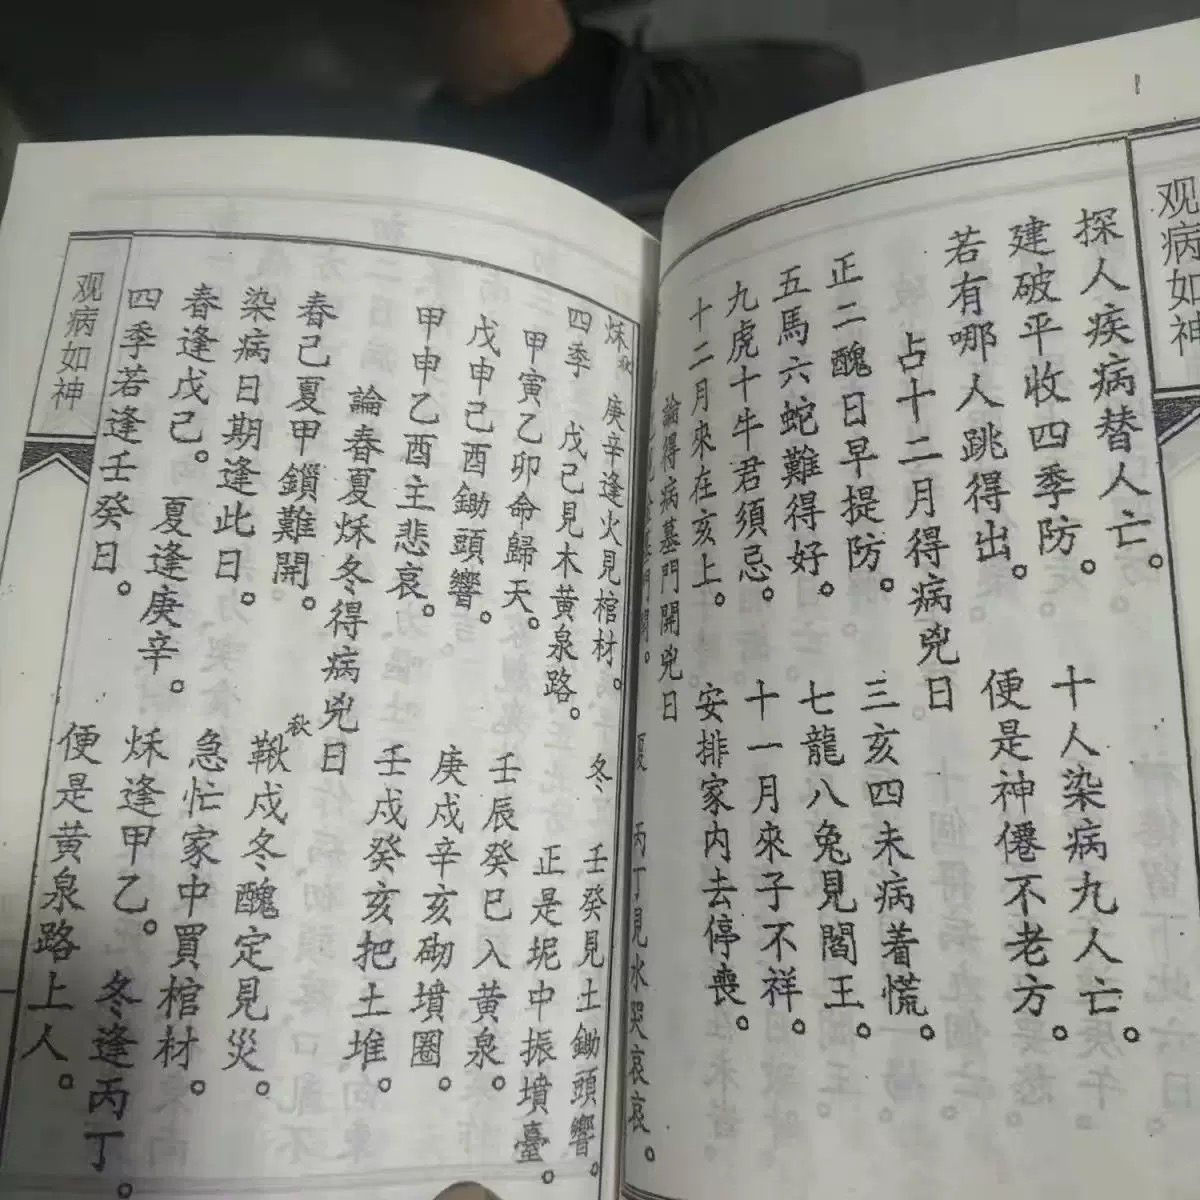 观病如神
探人疾病替人亡。十人染病九人亡。
建破平收四季防。便是神僊不老方。
若有哪人跳得出。
占十二月得病兇日
正二醜日早提防。三亥四未病着慌。
五馬六蛇難得好。七龍八兔見閻王。
九虎十牛君須忌。十一月來子不祥。
十二月來在亥上。安排家内去停喪。
論得病墓門開兇日
丙丁見水哭哀哀。
秌秋 庚辛逢火見棺材。冬 壬癸見土鋤頭響。
四季 戊己見木黄泉路。正是坭中振墳臺。
甲寅乙卯命歸天。壬辰癸巳入黄泉。
戊申己酉鋤頭響。庚戍辛亥砌墳圈。
甲申乙酉主悲哀。壬戍癸亥把土堆。
論春夏秌冬得病兇日
春己夏甲鎖難開。鞦秋戍冬醜定見災。
染病日期逢此日。急忙家中買棺材。
春逢戊己。夏逢庚辛。秌逢甲乙。冬逢丙丁。
四季若逢壬癸日。便是黄泉路上人。
观病如神